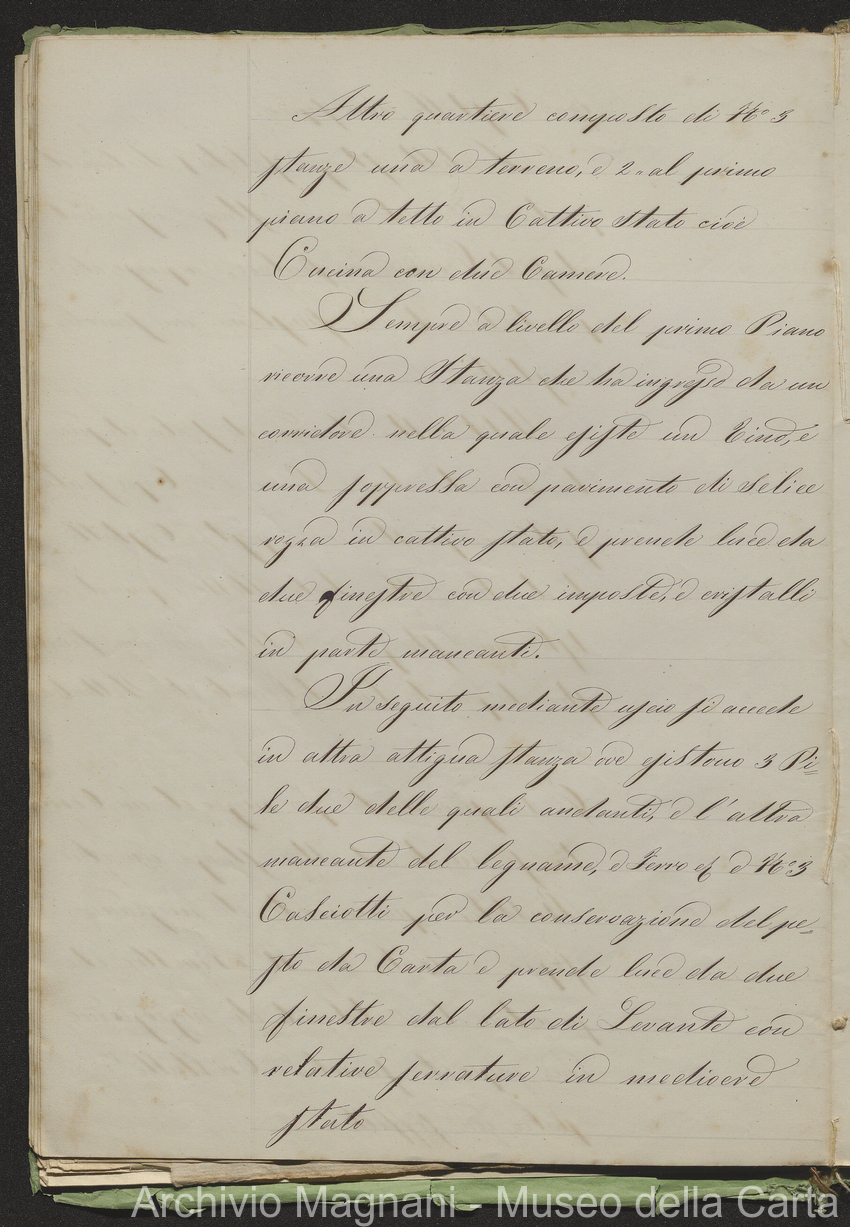 Altro quartiere composto di N.° 3
stanze una a terreno, e 2 " al primo
piano a tetto in Cattivo stato cioè
Cucina con due Camere.
Sempre a livello del primo Piano
ricorre una Stanza che ha ingresso da un
corridore nella quale esiste un Tino, e
una soppressa con pavimento di Selice
rozza in cattivo stato, e prende luce da
due finestre con due imposte, e cristalli
in parte mancanti.
In seguito mediante uscio si accede
in altra attigua stanza ove esistono 3 Pi=
le due delle quali andanti, e l'altra
mancante del legname, e Ferro e N.° 3
Casciotti per la conservazione del pe=
sto da Carta e prende luce da due
finestre dal lato di Levante con
relative serrature in mediocre
stato
Archivio Magnani - Museo della Carta